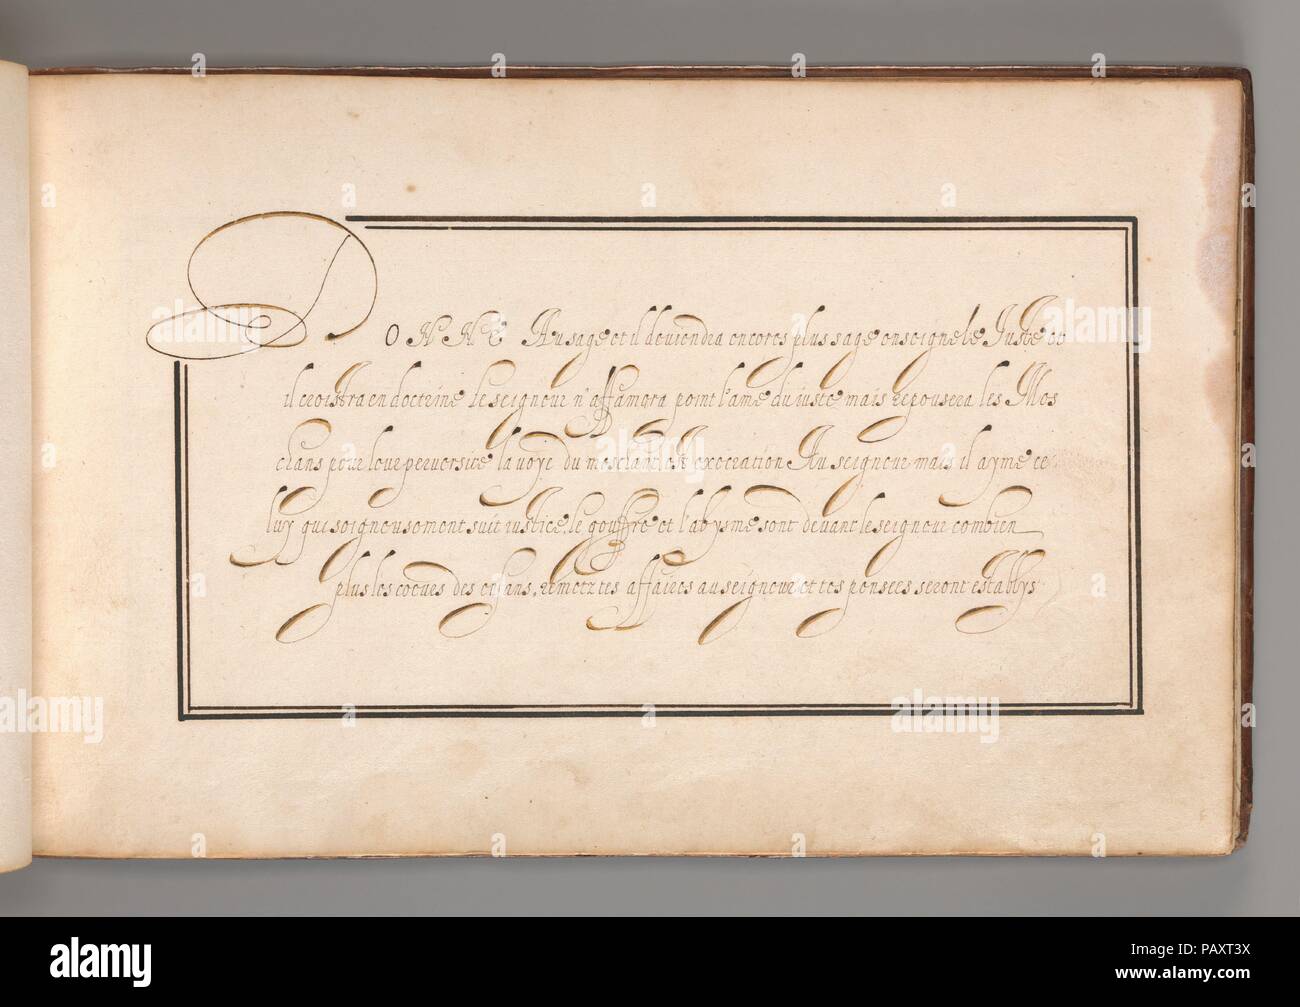 DONNE Au sage et il deviendra encores plus sage enseigne le Juste et
il croistra en doctrine le seigneur n'affamera point l'ame du iuste mais repousera les Mes
chans pour leur perversite la voye du meschant est execration Au seigneur mais il ayme ce
luy qui soigneusement suit iustice, le gouffre et l'abysme sont devant le seigneur combien
plus les coeurs des
remetz tes affaires au seigneur et tes pensees seront establys
alamy
Image ID: PAXT3X
www.alamy.com